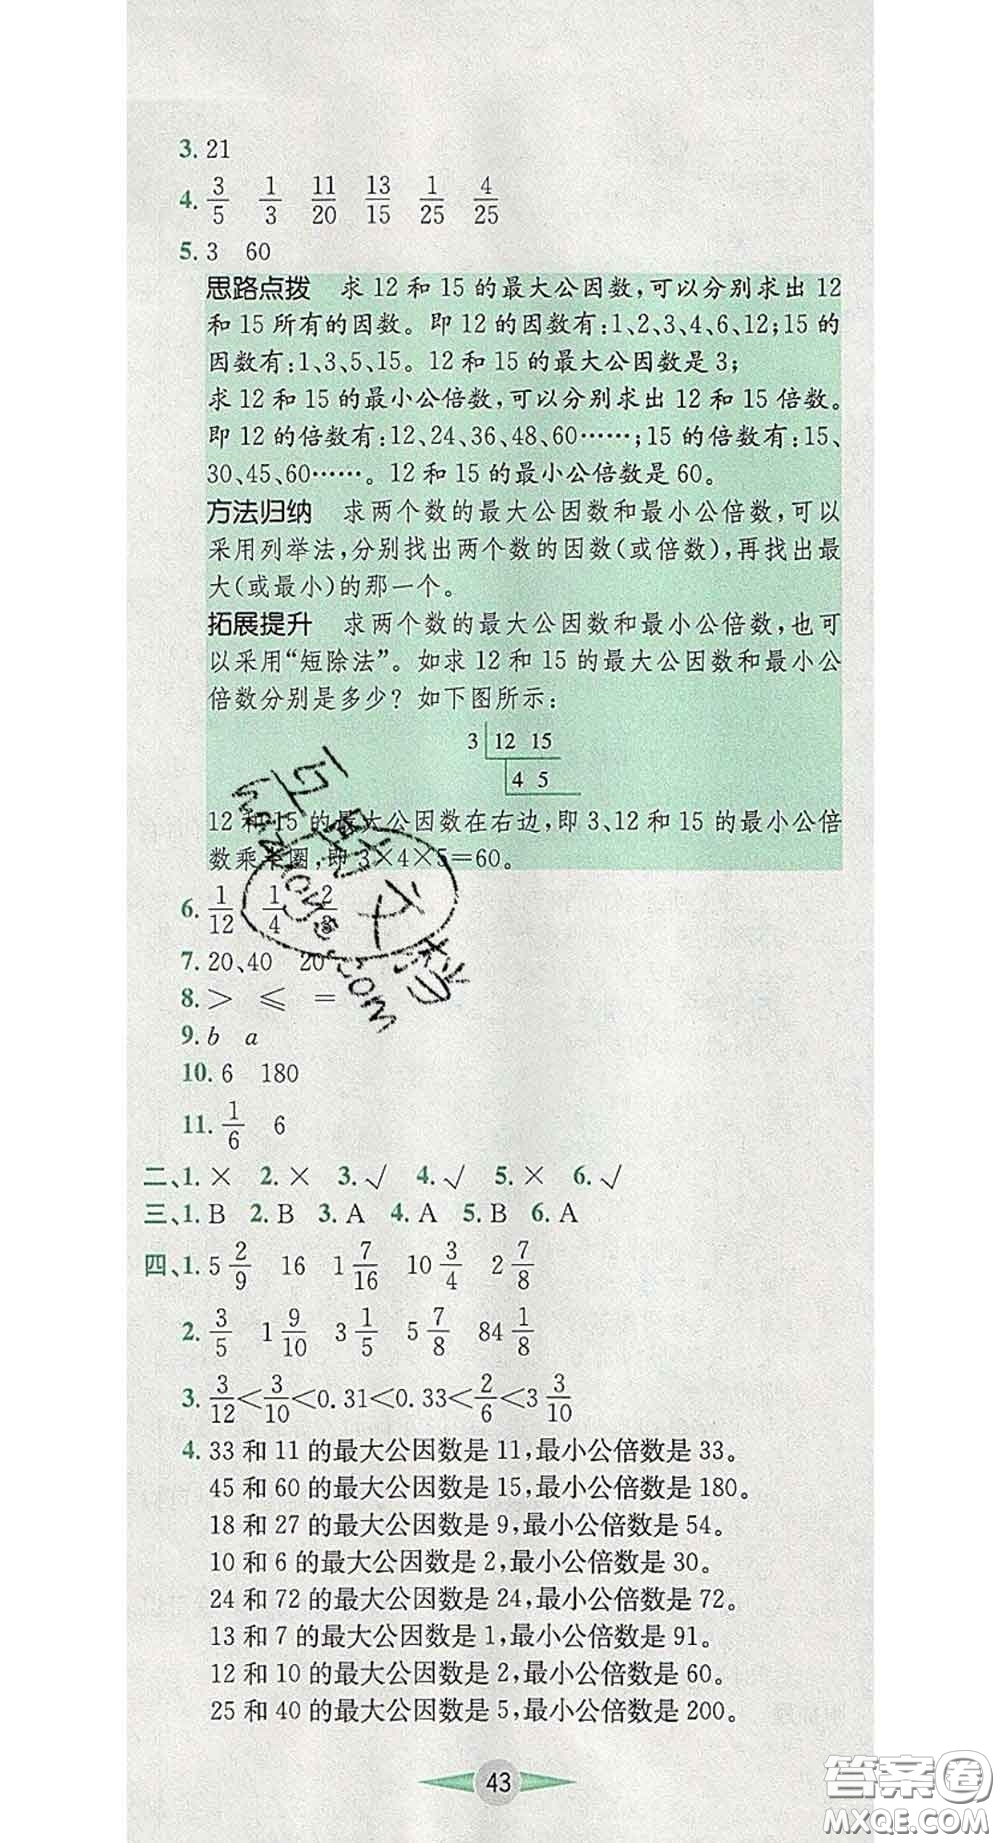 3. 21
4. 3/5 1/3 11/20 13/15 1/25 4/25
5. 3 60
思路点拨 求 12 和 15 的最大公因数,可以分别求出 12
和 15 所有的因数。即 12 的因数有:1、2、3、4、6、12;15 的
因数有:1、3、5、15。12 和 15 的最大公因数是 3;
求 12 和 15 的最小公倍数,可以分别求出 12 和 15 倍数。
即 12 的倍数有:12、24、36、48、60……;15 的倍数有:15、
30、45、60……。12 和 15 的最小公倍数是 60。
方法归纳 求两个数的最大公因数和最小公倍数,可以
采用列举法,分别找出两个数的因数(或倍数),再找出最
大(或最小)的那一个。
拓展提升 求两个数的最大公因数和最小公倍数,也可
以采用“短除法”。如求 12 和 15 的最大公因数和最小公
倍数分别是多少?如下图所示:
3 12 15
4 5
12 和 15 的最大公因数在右边,即 3、12 和 15 的最小公倍
数乘半圈,即 3×4×5=60。
6. 1/12 1/4
7. 20、40 20
8. > ≤ =
9. b a
10. 6 180
11. 1/6 6
二、1. × 2. × 3. √ 4. √ 5. × 6. √
三、1. B 2. B 3. A 4. A 5. B 6. A
四、1. 5 2/9 16 1 7/16 10 3/4 2 7/8
2. 3/5 1 9/10 3 1/5 5 7/8 84 1/8
3. 3/12<3/10<0.31<0.33<2/6<3 3/10
4. 33 和 11 的最大公因数是 11,最小公倍数是 33。
45 和 60 的最大公因数是 15,最小公倍数是 180。
18 和 27 的最大公因数是 9,最小公倍数是 54。
10 和 6 的最大公因数是 2,最小公倍数是 30。
24 和 72 的最大公因数是 24,最小公倍数是 72。
13 和 7 的最大公因数是 1,最小公倍数是 91。
12 和 10 的最大公因数是 2,最小公倍数是 60。
25 和 40 的最大公因数是 5,最小公倍数是 200。
43
答案卷
MXQE.COM